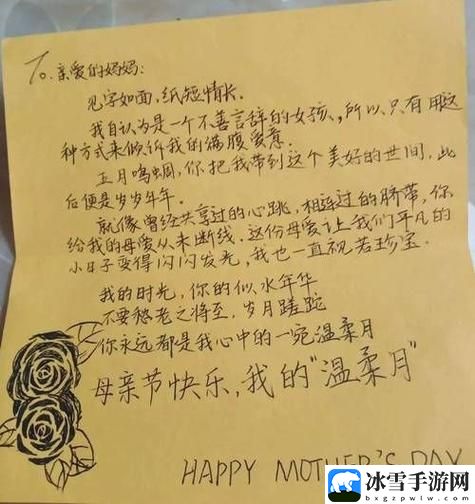 To.亲爱的妈妈：
见字如面，纸短情长。
我自认为是一个不善言辞的女孩，所以只有用这
种方式来倾诉我的满腹爱意。
五月鸣蜩，你把我带到这个美好的世间，此
后便是岁岁年年。
就像曾经共享过的心跳，相连过的脐带，你
给我的母爱从未断线。这份母爱让我们平凡的
小日子变得闪闪发光，我也一直视若珍宝。
我的时光，你的似水年华
不要愁老之将至，岁月蹉跎
你永远都是我心中的一宛温柔月
母亲节快乐，我的"温柔月"
HAPPY MOTHER'S DAY
冰雪手游网
bxgzpwlw.com